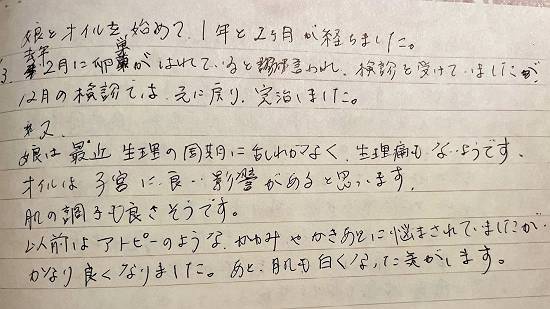 娘とオイルを始めて、1年と2ヶ月が経ちました。
去年2月に卵巣がはれていると言われ、検診を受けていましたが、
12月の検診では、元に戻り、完治しました。
又、
娘は最近生理の周期に乱れがなく、生理痛もないようです。
オイルは子宮に良い影響があると思います。
肌の調子も良さそうです。
以前はアトピーのような、かゆみやかきあとに悩まされていましたが、
かなり良くなりました。あと、肌も白くなった気がします。